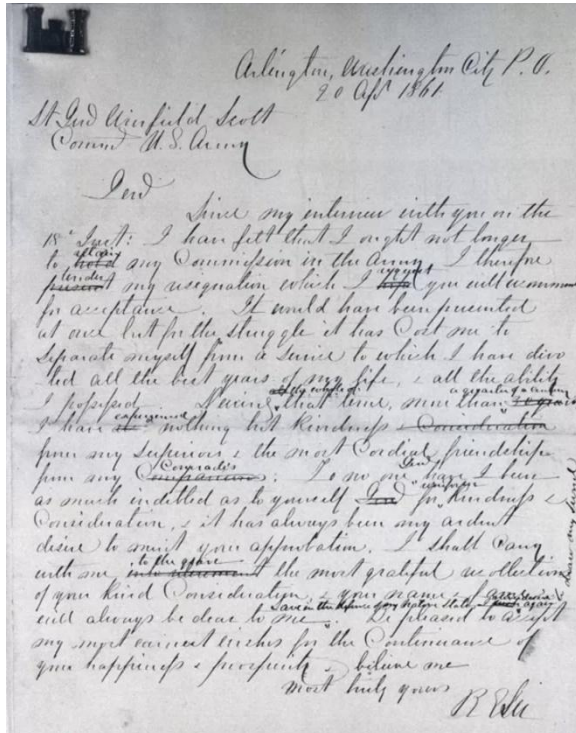 Arlington, Washington City P.O.
20 Apl 1861
Lt Genl Winfield Scott
Commd U.S. Army
Genl
Since my interview with you on the
18th Inst: I have felt that I ought not longer
retain
to hold my Commission in the Army. I therefore
tender request
present my resignation which I you will recommend
for acceptance. It would have been presented
at once but for the struggle it has Cost me to
separate myself from a service to which I have devo
ted all the best years of my life, & all the ability
I possessed. During the whole of that time, more than a quarter of a century
experienced
I have nothing but kindness Consideration
from my superiors & the most Cordial friendship
Comrades Genl
from my Companions: To no one have I been
uniform
as much indebted as to yourself for kindness &
Consideration, & it has always been my ardent
desire to merit your approbation. I shall carry
to the grave
with me the most grateful recollection
of your kind Consideration, & your name & fame
Save in the defence of my native State
will always be dear to me. Be pleased to accept
my most earnest wishes for the Continuance of
your happiness & prosperity & believe me
most truly yours
R E Lee
draw my sword